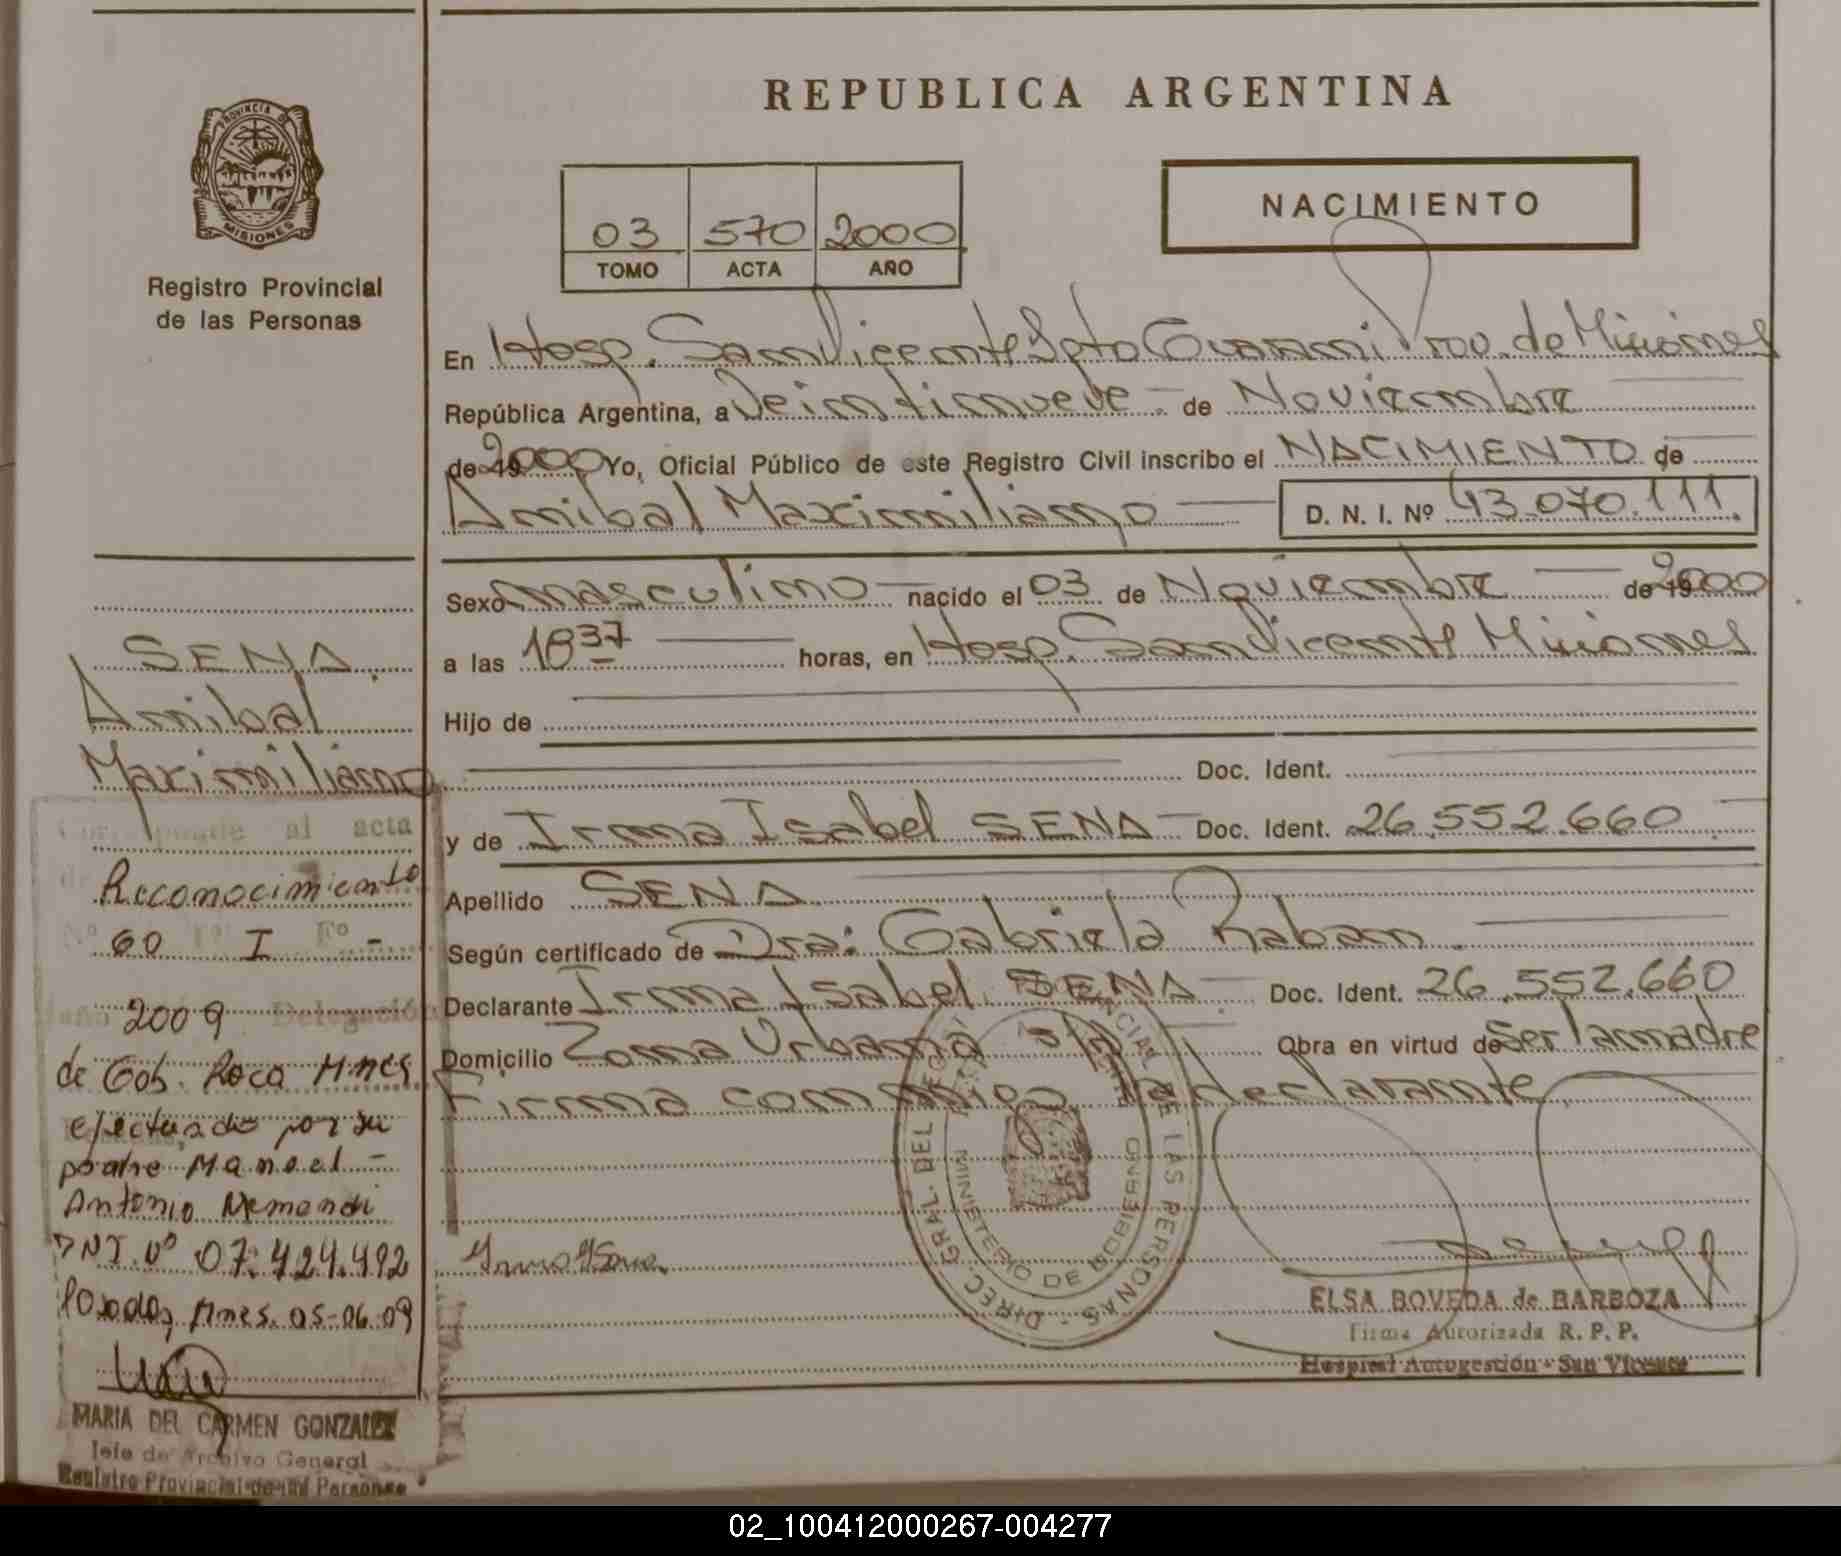 PROVINCIA DE
MISIONES
Registro Provincial
de las Personas
SENA
Annibal
Maximiliano
Corresponde al acta
de
Reconocimiento
Nº 60 Tº I Fº -
año 2009 Delegación
de Gob. Roca Mnes
efectuado por su
padre Manoel -
Antonio
DNI. Nº 07.424.492
Posadas, Mnes. 05-06-09
MARIA DEL CARMEN GONZALEZ
Jefe de Archivo General
Registro Provincial de las Personas
REPUBLICA ARGENTINA
03 570 2000
TOMO ACTA AÑO
NACIMIENTO
En Hosp. San Vicente Dpto Guarani Prov. de Misiones
República Argentina, a Veintinueve - de Noviembre
de 19 2000 Yo, Oficial Público de este Registro Civil inscribo el NACIMIENTO de
Annibal Maximiliano D. N. I. Nº 43.070.111.
Sexo masculino nacido el 03 de Noviembre de 19 2000
a las 18 37 horas, en Hosp. San Vicente Misiones
Hijo de
Doc. Ident.
y de Irma Isabel SENA - Doc. Ident. 26.552.660
Apellido SENA
Según certificado de Dra: Gabriela Raban.
Declarante Irma Isabel SENA - Doc. Ident. 26.552.660
Domicilio Zona Urbana s/n Obra en virtud de Ser la madre
Firma conmigo la declarante
DIREC. GRAL. DEL REGIST. PROVINCIAL DE LAS PERSONAS
MINISTERIO DE GOBIERNO
ELSA BOVEDA de BARBOZA
Firma Autorizada R. P. P.
Hospital Autogestión - San Vicente
02_100412000267-004277